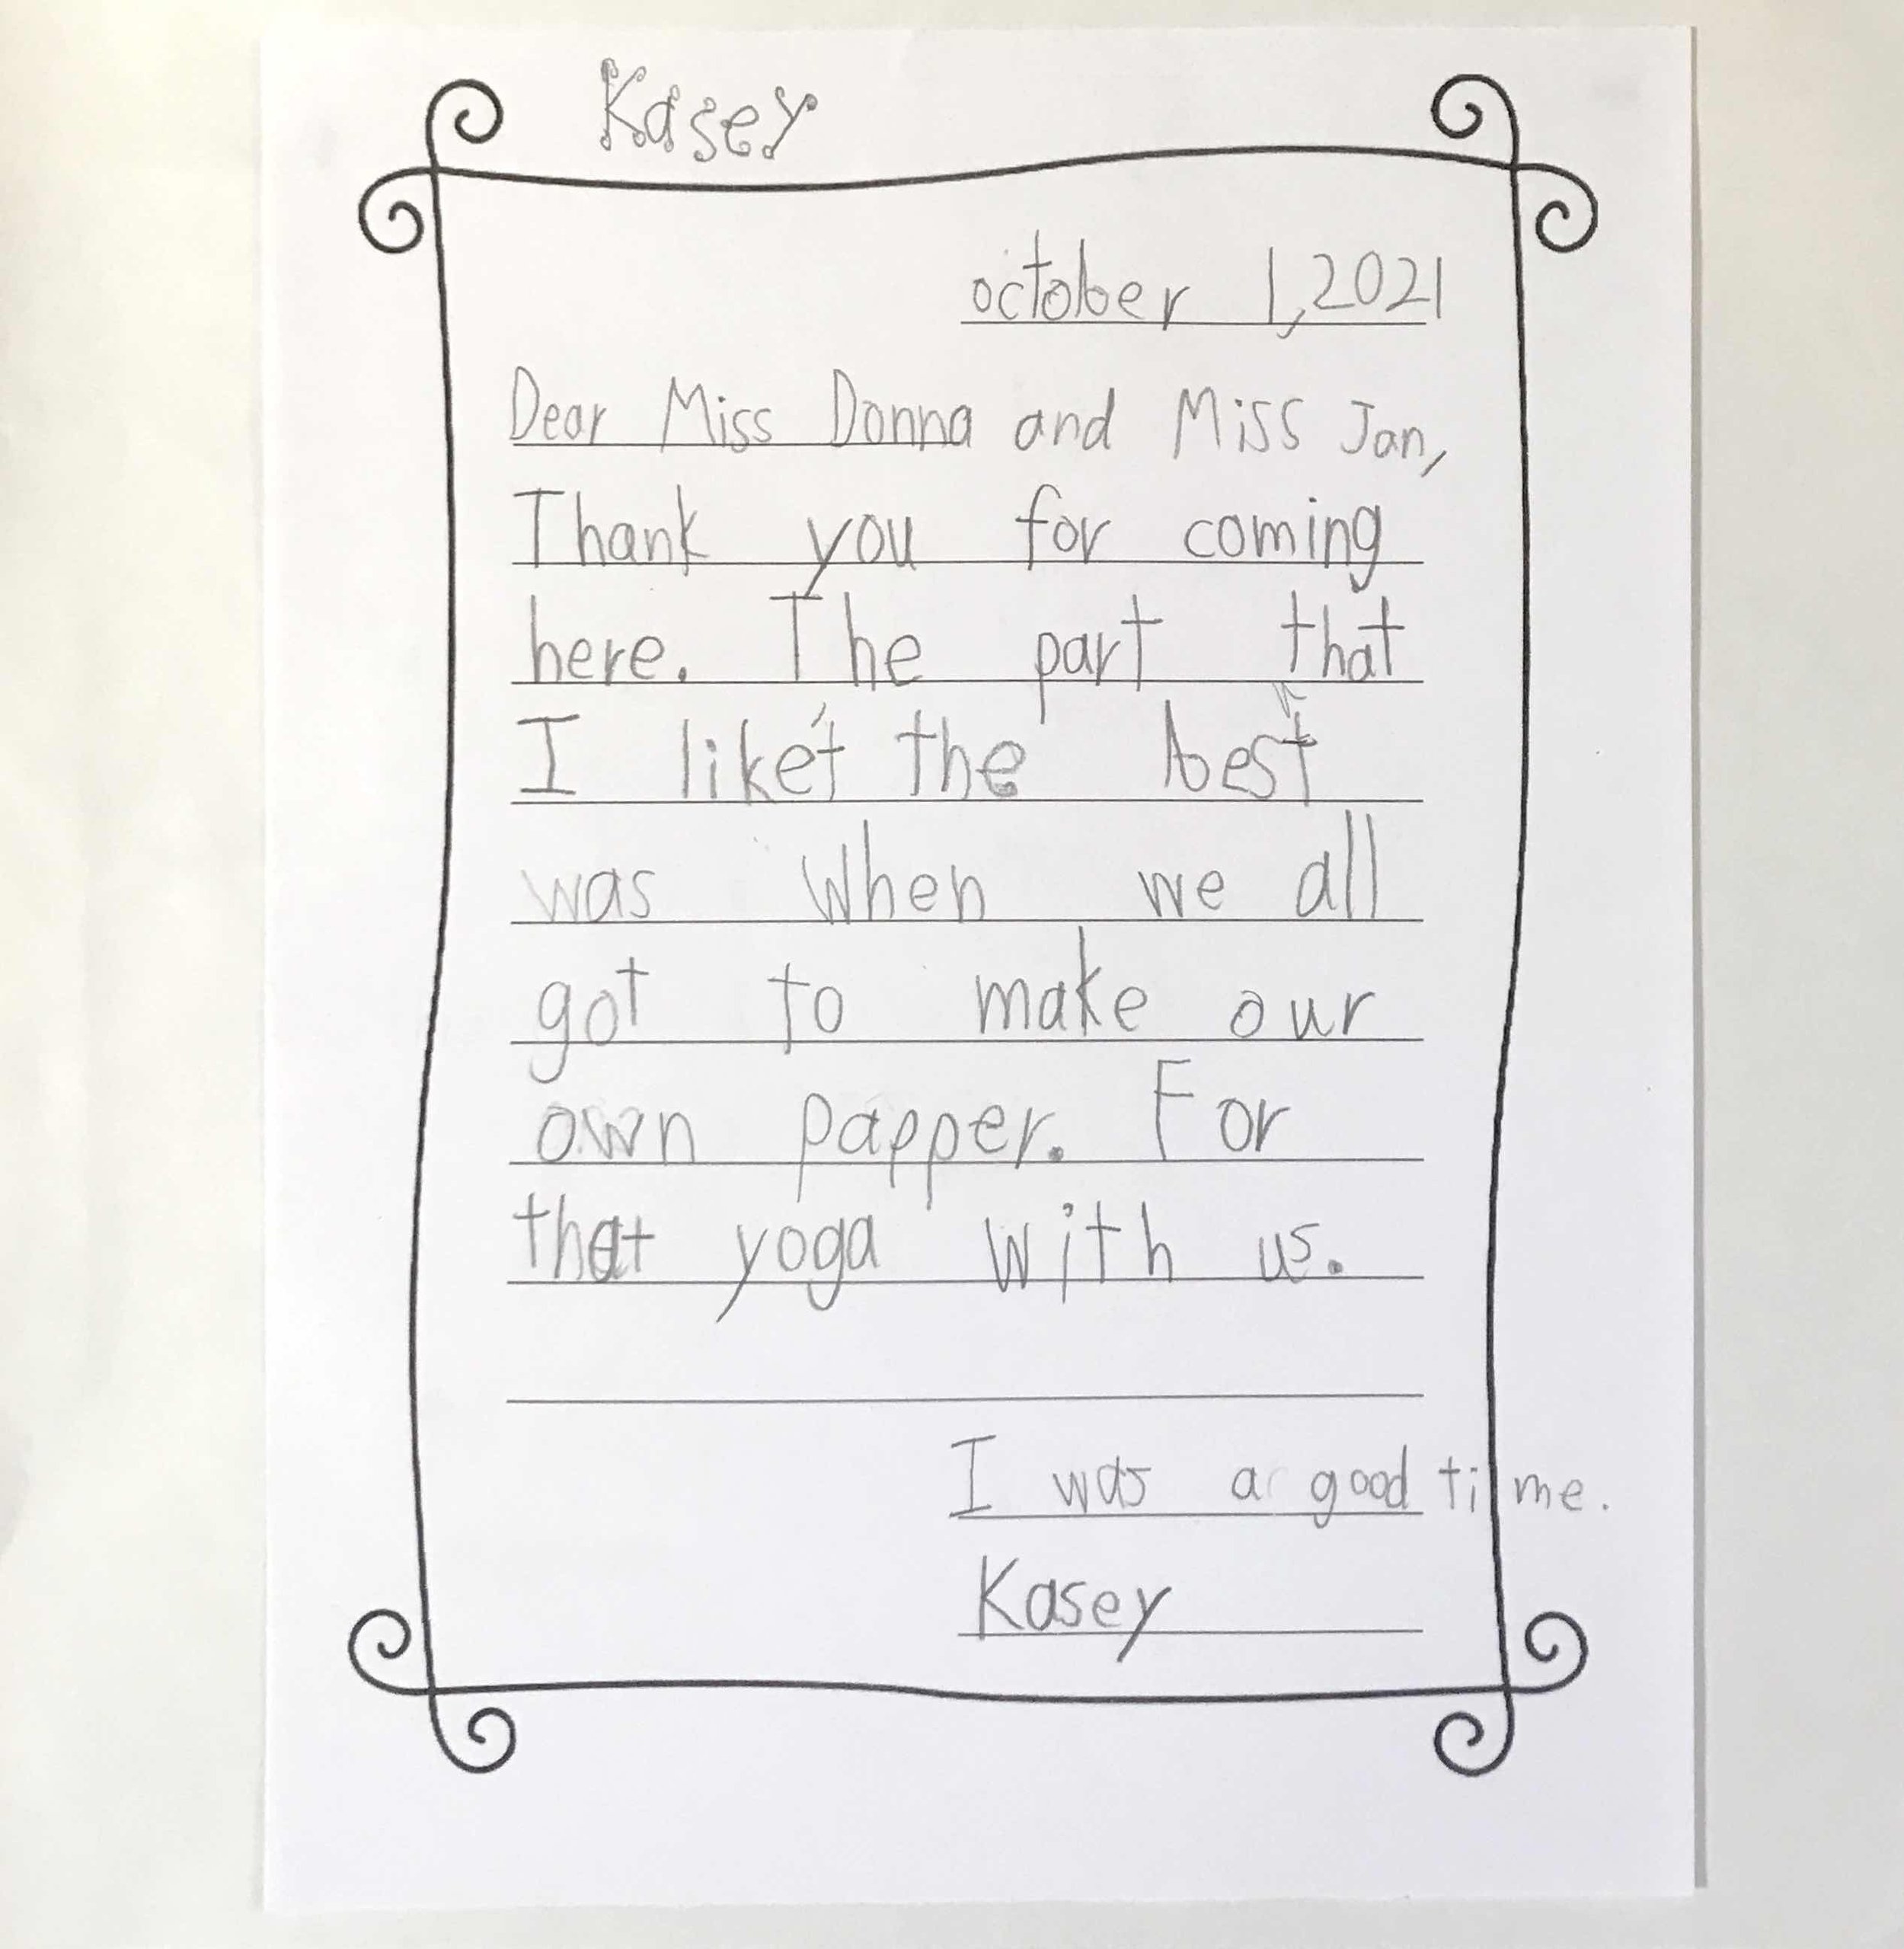 Kasey
october 1, 2021
Dear Miss Donna and Miss Jan,
Thank you for coming
here. The part that
I like't the best
was when we all
got to make our
own papper. For
that yoga with us.
I was a good time.
Kasey